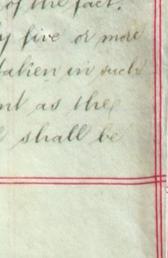 of the fact.
y five or more
taken in such
nt as the
shall be